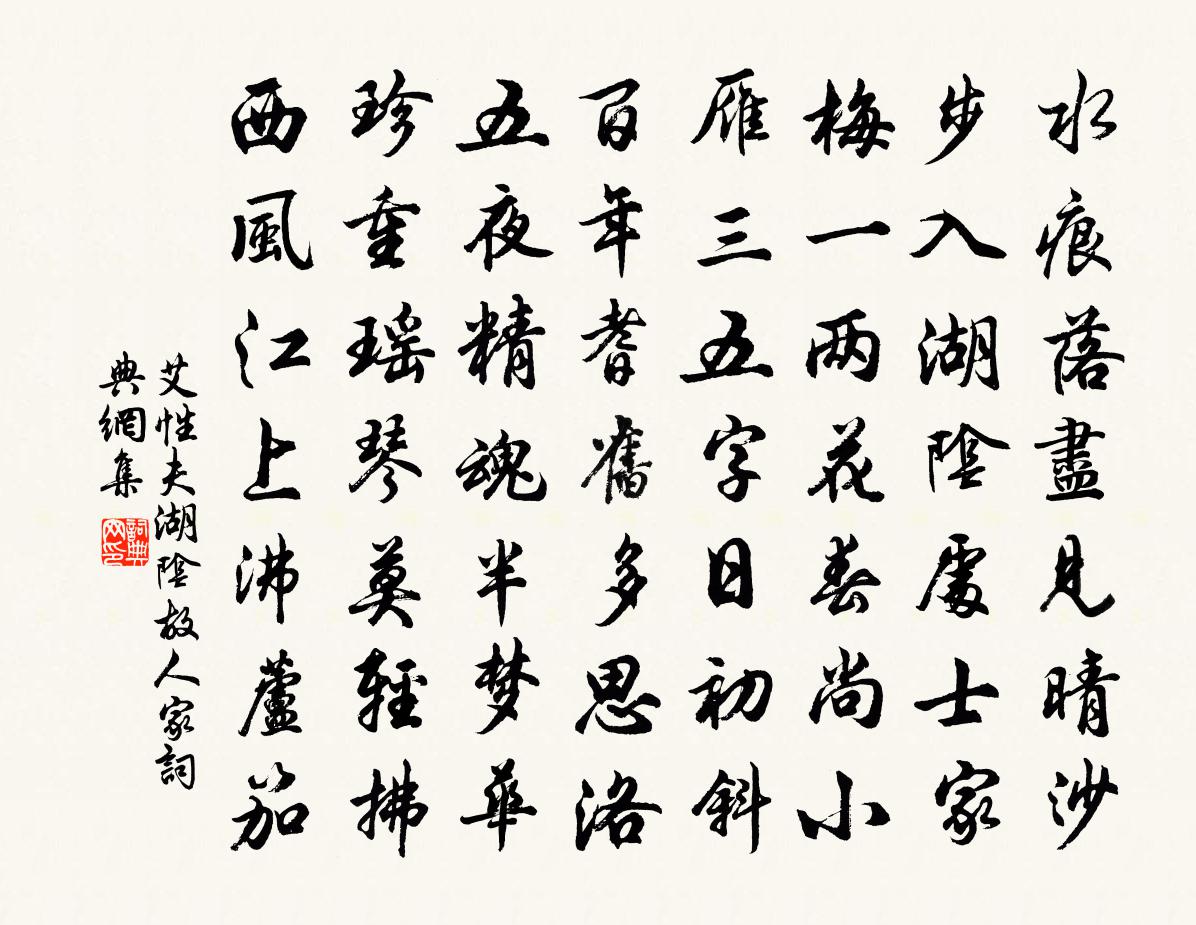 水痕落盡見晴沙
步入湖陰處士家
梅一兩花春尚小
雁三五字日初斜
百年耆舊多思洛
五夜精魂半夢華
珍重瑶琴莫輕拂
西風江上沸蘆笳
艾性夫湖陰故人家詞
典網集
詞典
网印